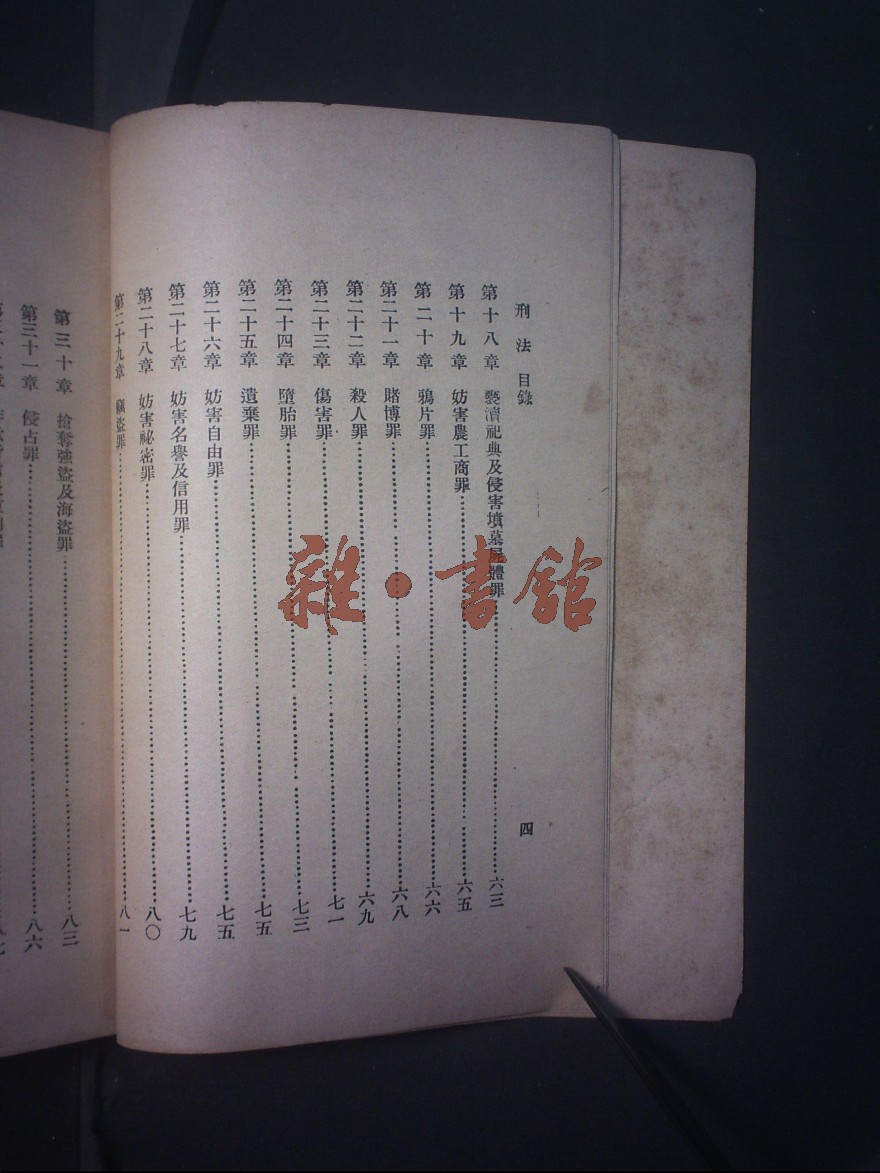 刑法 目錄 四
第十八章 褻瀆祀典及侵害墳墓屍體罪 六三
第十九章 妨害農工商罪 六五
第二十章 鴉片罪 六六
第二十一章 賭博罪 六八
第二十二章 殺人罪 六九
第二十三章 傷害罪 七一
第二十四章 墮胎罪 七三
第二十五章 遺棄罪 七五
第二十六章 妨害自由罪 七五
第二十七章 妨害名譽及信用罪 七九
第二十八章 妨害祕密罪 八〇
第二十九章 竊盜罪 八一
第三十章 搶奪強盜及海盜罪 八三
第三十一章 侵占罪 八六
雜·書館